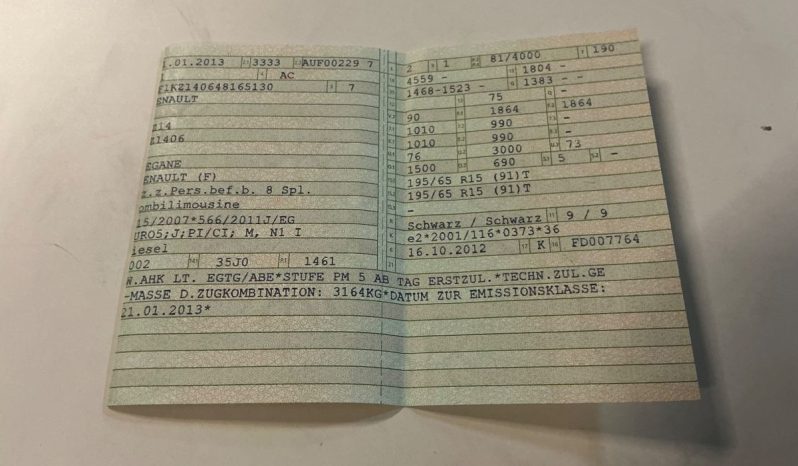 .01.2013 3333 AUF00229 7
AC
F1K2140648165130 7
ENAULT
Z14
Z1406
EGANE
ENAULT (F)
z.z.Pers.bef.b. 8 Spl.
ombilimousine
15/2007*566/2011J/EG
URO5;J;PI/CI; M, N1 I
iesel
002 35J0 1461
2 1 81/4000 190
4559 - 1804 -
1468-1523 - 1383 - -
75 -
90 1864 1864
1010 990 -
1010 990 -
76 3000 73
1500 690 5 -
195/65 R15 (91)T
195/65 R15 (91)T
-
Schwarz / Schwarz 9 / 9
e2*2001/116*0373*36
16.10.2012 K FD007764
W.AHK LT. EGTG/ABE*STUFE PM 5 AB TAG ERSTZUL.*TECHN.ZUL.GE
-MASSE D.ZUGKOMBINATION: 3164KG*DATUM ZUR EMISSIONSKLASSE:
21.01.2013*